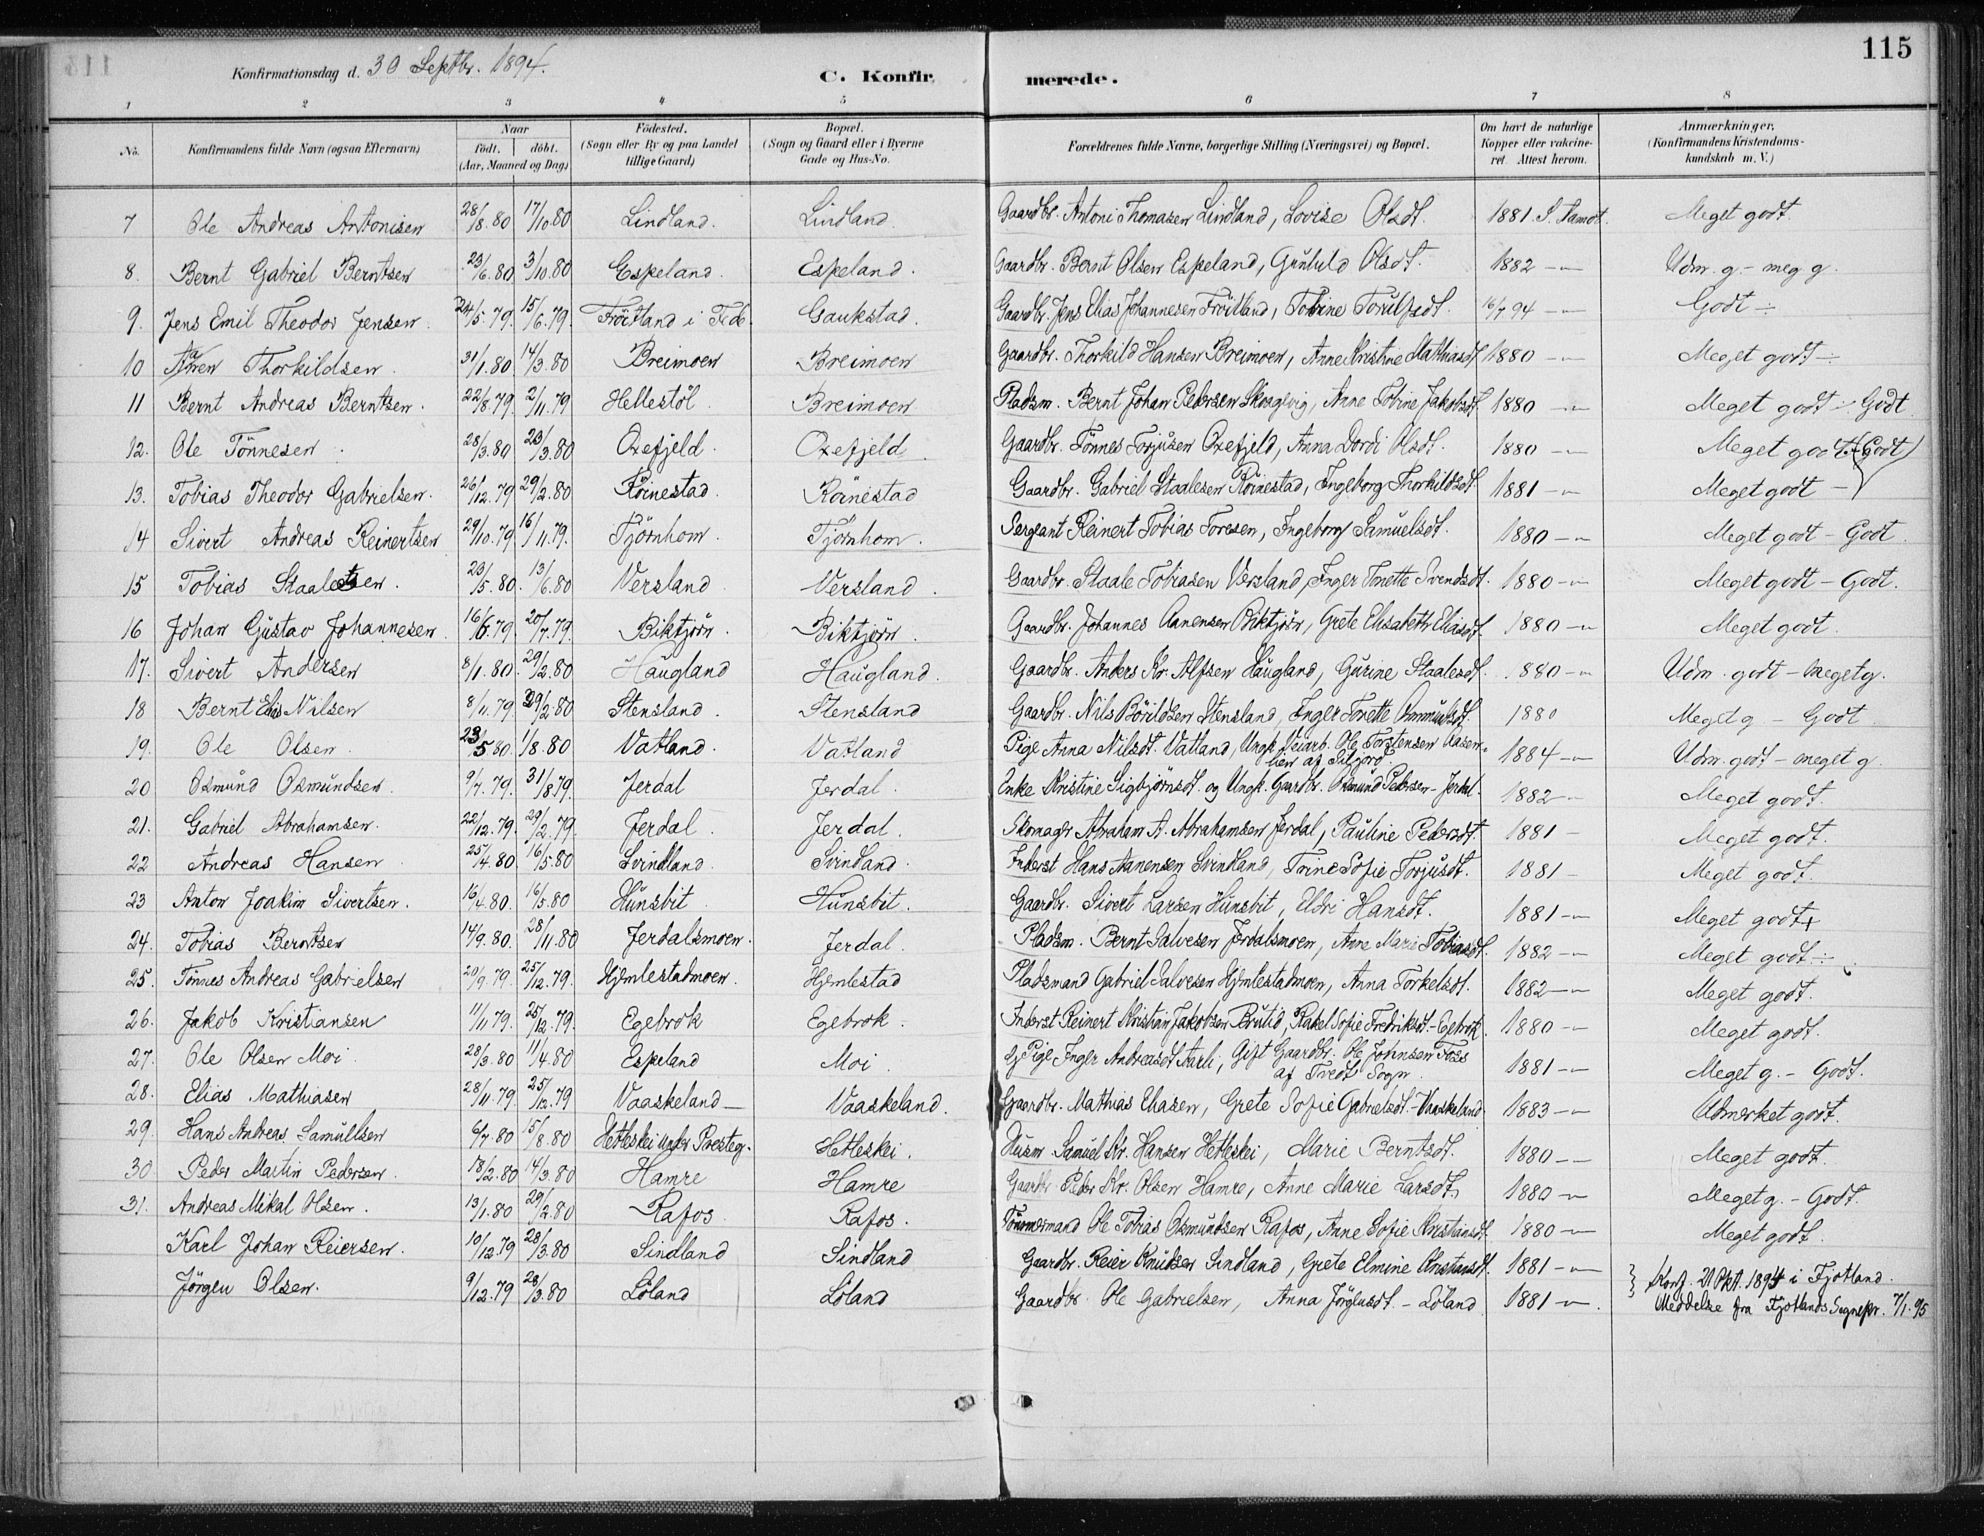 115
Konfirmationsdag d. 30 Septbr. 1894.
C. Konfirmerede.
1 2 3 4 5 6 7 8
No. Konfirmandens fulde Navn (ogsaa Efternavn) Naar födt. döbt. (Aar, Maaned og Dag) Födested. (Sogn eller By og paa Landet tillige Gaard) Bopæl. (Sogn og Gaard eller i Byerne Gade og Hus-No. Forældrenes fulde Navne, borgerlige Stilling (Næringsvei) og Bopæl. Om havt de naturlige Kopper eller vakcineret. Attest herom. Anmærkninger. (Konfirmandens Kristendomskundskab m. V.)
7 Ole Andreas Antonisen 28/8.80 17/10.80 Lindland. Lindland. Gaardbr. Antoni Thomasen Lindland, Lovise Olsdt. 1881. S. Tamdt. Meget godt
8. Bernt Gabriel Berntsen 23/6.80 3/10.80 Espeland. Espeland. Gaardbr. Bernt Olsen Espeland, Gunuld Olsdt. 1882 -"- Udm. g - meg. g.
9. Jens Emil Theodor Jensen. 24/5.79. 15/6.79. Fröitland i Fede. Gaukstad. Gaardbr. Jens Elias Johannesen Fröitland, Tobine Torulfsdt. 16/7 94 -"- Godt ÷
10 Aanen Thorkildsen. 31/1.80 14/3.80 Breimoen Breimoen Gaardbr. Thorkild Hansen Breimoen, Anne Kristine Mathiasdt 1880 -"- Meget godt ÷
11 Bernt Andreas Berntsen. 22/8.79. 2/11.79 Hellestöl Breimoen Pladsm. Bernt Johan Pedersen Skoglvig, Anne Tobine Jakobsdt. 1880 -"- Meget godt - Godt
12. Ole Tönnesen 28/3.80 23/3.80 Oxefjeld. Oxefjeld. Gaardbr. Tönnes Torjusen Oxefjeld, Anna Dordi Olsdt. 1880 -"- Meget godt (Godt)
13. Tobias Theodor Gabrielsen. 26/12.79 29/2.80 Röinestad. Röinestad Gaardbr. Gabriel Staalesen Röinestad, Ingeborg Thorkildsdt. 1881 -"- Meget godt -
14 Sivert Andreas Reinertsen 29/10.79. 16/11.79. Tjörnhom. Tjörnhom. Sergeant Reinert Tobias Toresen, Ingeborg Samuelsdt. 1880 -"- Meget godt - Godt.
15 Tobias Staalesen. 23/5.80. 13/6.80 Versland Versland. Gaardbr. Staale Tobiasen Versland, Inger Tonette Svendsdt. 1880 -"- Meget godt - Godt.
16 Johan Gustav Johannesen 16/6.79. 20/7.79. Biktjörn. Biktjörn. Gaardbr. Johannes Aanensen Biktjörn, Grete Elisabeth Eliasdt. 1880 -"- Meget godt.
17. Sivert Andersen 8/1.80. 29/2.80 Haugland Haugland. Gaardbr. Anders Kr. Alfsen Haugland, Gurine Staalesdt. 1880 -"- Udm. godt - meget g.
18 Bernt Elias Nilsen 8/11.79 29/2.80 Stensland. Stensland Gaardbr. Nils Börildsen Stensland, Inger Tonette Osmundsdt. 1880 Meget g. - Godt
19. Ole Olsen. 23/5.80 1/8.80 Vatland. Vatland Pige Anna Nilsdt. Vatland, Ungk. Veiarb. Ole Torstensen Aasenlien af Siljord. 1884 -"- Udm. godt - meget g.
20 Osmund Osmundsen. 9/7.79. 31/8.79. Jerdal Jerdal. Enke Kristine Sigbjörnsdt. og Ungk. Gaardbr. Osmund Pedersen - Jerdal. 1882 - Meget godt.
21. Gabriel Abrahamsen. 22/12.79. 29/2.79. Jerdal. Jerdal. Skomager Abraham A. Abrahamsen Jerdal, Pauline Pedersdt. 1881 - Meget godt.
22 Andreas Hansen 25/4.80 16/5.80 Svindland. Svindland. Inderst Hans Aanensen Svindland, Trine Sofie Torjusdt. 1881 - Meget godt.
23 Anton Joakim Sivertsen. 16/4.80. 16/5.80 Hunsbit. Hunsbit. Gaardbr. Sivert Larsen Hunsbit, Eldri Hansdt. 1881 -"- Meget godt +
24. Tobias Berntsen 14/9.80. 28/11.80 Jerdalsmoen. Jerdal. Pladsm. Bernt Salvesen Jerdalsmoen, Anne Marie Tobiasdt. 1882 -"- Meget godt ÷
25. Tönnes Andreas Gabrielsen 20/9.79. 25/12.79. Hjemlestadmoen. Hjemlestad Pladsmand Gabriel Salvesen Hjemlestadmoen, Anna Torkelsdt. 1882 -"- Meget godt.
26. Jakob Kristiansen 11/11.79. 25/12.79. Egebrok Egebrok. Inderst Reinert Kristian Jakobsen Brutid, Rakel Sofie Fredriksdt. - Egebrok 1880 -"- Meget godt.
27. Ole Olsen Moi. 28/3.80 11/4.80 Espeland Moi. Pige Inger Andreasdt Aarli, Gift Gaardbr. Ole Johnsen Foss af Tvedt Sogn. 1881 -"- Meget g. - Godt.
28. Elias Mathiasen 28/11.79 25/12.79 Vaaskeland Vaaskeland. Gaardbr. Mathias Eliasen, Grete Sofie Gabrielsdt. - Vaaskeland 1883 -"- Udmerket godt.
29. Hans Andreas Samuelsen 6/7.80 15/8.80 Hetleskei under Præsteg. Hetleskei. Husm Samuel Kr. Hansen Hetleskei, Marie Berntsdt. 1880 -"- Meget godt.
30 Peder Martin Pedersen. 18/2.80 14/3.80 Hamre Hamre Gaardbr Peder Kr. Olsen Hamre, Anne Marie Larsdt. 1880 -"- Meget g. - Godt.
31. Andreas Mikal Olsen. 13/1.80 29/2.80 Rafos Rafos. Tömmermand Ole Tobias Osmundsen Rafos, Anne Sofie Kristiansdt. 1880 -"- Meget godt.
Karl Johan Reiersen. 10/12.79 28/3.80 Sindland Sindland Gaardbr. Reier Knudsen Sindland, Grete Elmine Kristiansdt. 1881 -"-
Jörgen Olsen. 9/12.79 28/3.80 Löland Löland Gaardbr Ole Gabrielsen, Anna Jörgensdt. - Löland 1881 -"-
} Konf. 21 Okt. 1894 i Fjotland.
Meddelse fra Fjotlands Sognepr. 7/1.95